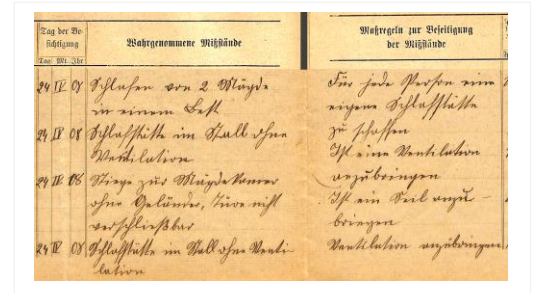 Tag der Be-
sichtigung
Wahrgenommene Mißstände
Maßregeln zur Beseitigung
der Mißstände
Tag Mt. Jhr
24 IV 08 Schlafen von 2 Mägde
in einem Bett
Für jede Person eine
eigene Schlafstätte
zu schaffen
24 IV 08 Schlafstätte im Stall ohne
Ventilation
Ist eine Ventilation
anzubringen
24 IV 08 Stiege zur Mägdekammer
ohne Geländer, Türe nicht
verschließbar
Ist ein Seil anzu-
bringen
24 IV 08 Schlafstätte im Stall ohne Venti-
lation
Ventilation anzubringen